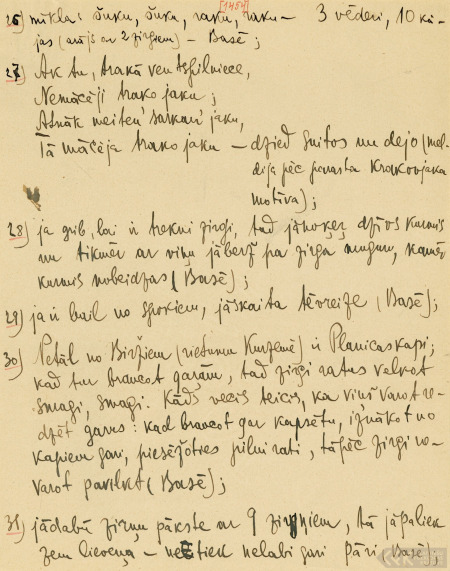 [1454]
26) mīkla: šuku, šuku, raku, raku – 3 vēderi, 10 kā-
jas (arājs ar 2 zirgiem) – Basē;
27) Ak tu, trakā ventspilniece,
Nemācēji trako jaku;
Atnāk meiten' sarkan' jaku,
Tā mācēja trako jaku – dzied Suitos un dejo (mel-
dija pēc parasta Krakovjaka
motīva);
28) ja grib, lai ir trekni zirgi, tad jānoķeŗ dzīvs kurmis
un tikmēr ar viņu jāberž pa zirga muguru, kamēr
kurmis nobeidzas (Basē);
29) ja ir bail no spokiem, jāskaita tēvreize (Basē);
30) Netāl no Biržiem (rietumu Kurzemē) ir Planicas kapi;
kad tur braucot garām, tad zirgi ratus velkot
smagi, smagi. Kāds vecis teicis, ka viņš varot re-
dzēt garus: kad braucot gar kapsētu, iznākot no
kapiem gari, piesēžoties pilni rati, tāpēc zirgi ne-
varot pavilkt (Basē);
31) jādabū zirņu pākste ar 9 zirņiem, tā jāpaliek
zem lieveņa – netiek nelabi gari pāri (Basē);